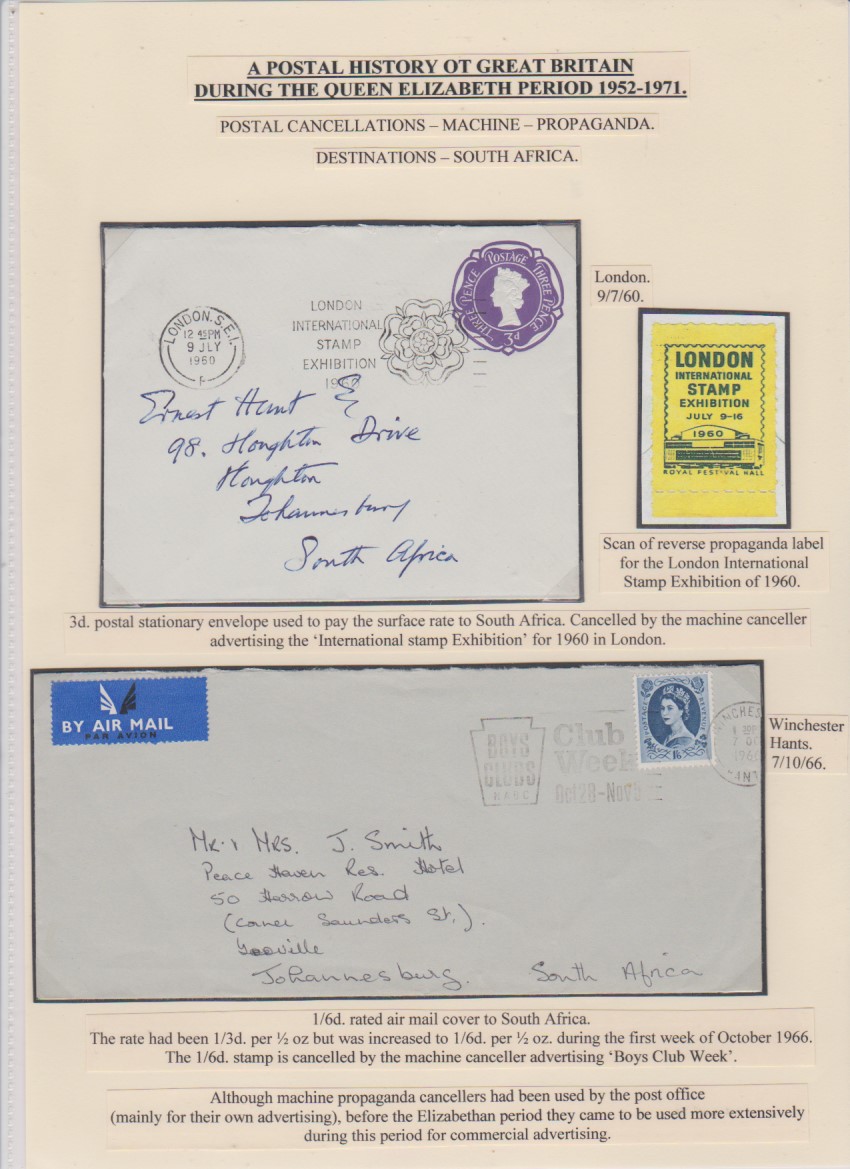 A POSTAL HISTORY OT GREAT BRITAIN
DURING THE QUEEN ELIZABETH PERIOD 1952-1971.
POSTAL CANCELLATIONS – MACHINE – PROPAGANDA.
DESTINATIONS – SOUTH AFRICA.
LONDON. S.E.1.
12 45PM
9 JLY
1960
F
LONDON
INTERNATIONAL
STAMP
EXHIBITION
1960
POSTAGE THREE PENCE THREE PENCE
3d
Ernest Hunt
98. Houghton Drive
Houghton
Johannesburg
South Africa
London.
9/7/60.
LONDON
INTERNATIONAL
STAMP
EXHIBITION
JULY 9-16
1960
ROYAL FESTIVAL HALL
Scan of reverse propaganda label
for the London International
Stamp Exhibition of 1960.
3d. postal stationary envelope used to pay the surface rate to South Africa. Cancelled by the machine canceller
advertising the ‘International stamp Exhibition’ for 1960 in London.
BY AIR MAIL
PAR AVION
BOYS
CLUBS
NABC
Club
Week
Oct 28-Nov 5
POSTAGE REVENUE
1/6
WINCHES
7 OC
196
Winchester
Hants.
7/10/66.
Mr. & Mrs. J. Smith
Peace Haven Res. Hotel
50 Harrow Road
(Corner Saunders St.).
Johannesburg. South Africa
1/6d. rated air mail cover to South Africa.
The rate had been 1/3d. per ½ oz but was increased to 1/6d. per ½ oz. during the first week of October 1966.
The 1/6d. stamp is cancelled by the machine canceller advertising ‘Boys Club Week’.
Although machine propaganda cancellers had been used by the post office
(mainly for their own advertising), before the Elizabethan period they came to be used more extensively
during this period for commercial advertising.